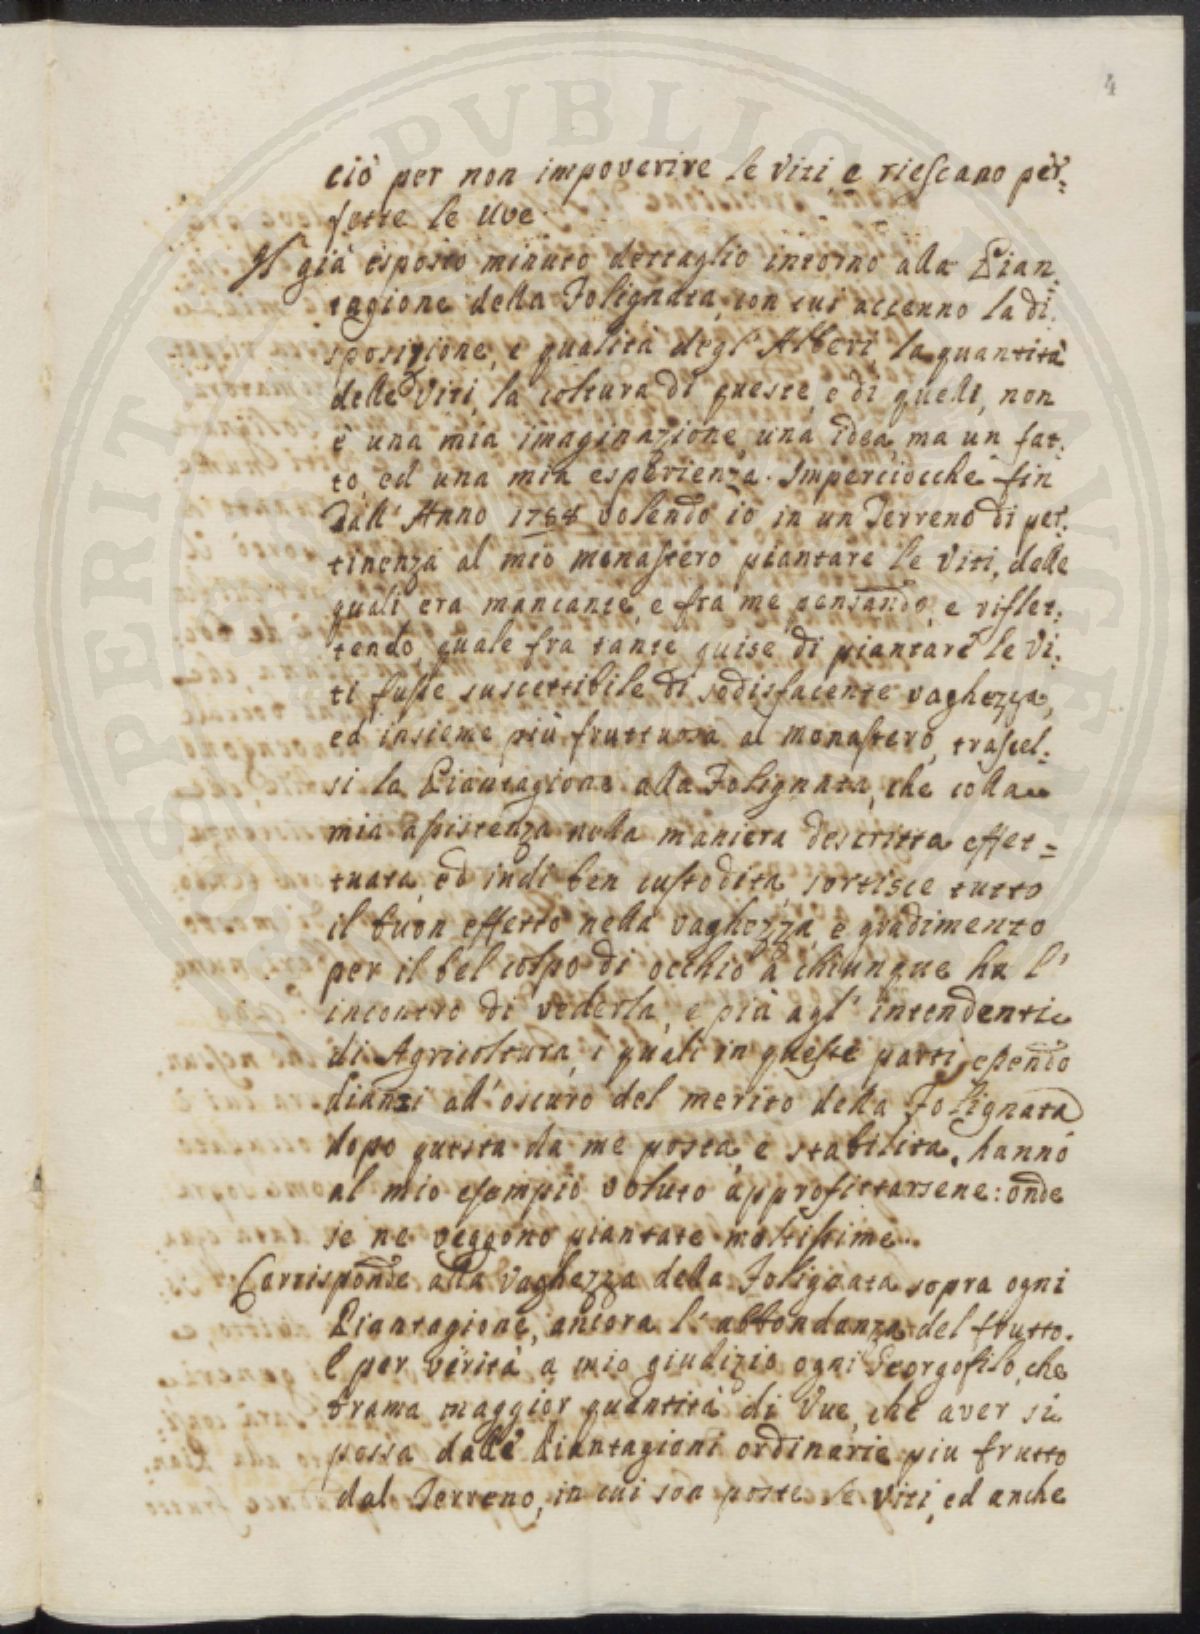 4
ciò per non impoverire le Viti, e riescano per=
fette le Uve.
Il già esposto minuto dettaglio intorno alla Pian,
tagione della Folignata, con cui accenno la di,
sposizione, e qualità degl' Alberi, la quantità
delle Viti, la coltura di queste, e di quelli, non
è una mia imaginazione, una idea, ma un fat,
to, ed una mia esperienza. Imperciocche fin
dall' Anno volendo io in un Terreno di per,
tinenza al mio Monastero piantare le Viti, delle
quali era mancante, e fra me pensando, e riflet,
tendo, quale fra tante guise di piantare le Vi,
ti fusse suscettibile di sodisfacente vaghezza,
ed insieme più fruttuosa al Monastero, trascel,
si la Piantagione alla Folignata, che colla
mia assistenza nella maniera descritta effet=
tuata, ed indi ben custodita, sortisce tutto
il buon effetto nella vaghezza, e gradimento
per il bel colpo di occhio a chiunque ha l'
incontro di vederla, e più agl' intendenti
di Agricoltura, i quali in queste parti essendo
dianzi all' oscuro del merito della Folignata
dopo questa da me posta, e stabilita, hanno
al mio esempio voluto approfittarsene: onde
se ne veggono piantate moltissime.
Corrisponde alla vaghezza della Folignata sopra ogni
Piantagione, ancora l' abbondanza del frutto.
E per verità a mio giudizio ogni Georgofilo, che
brama maggior quantità di Uve, che aver si
possa dalle Piantagioni ordinarie, più frutto
dal Terreno, in cui son poste le Viti, ed anche
PERITAS PVBLICA AVGENDA